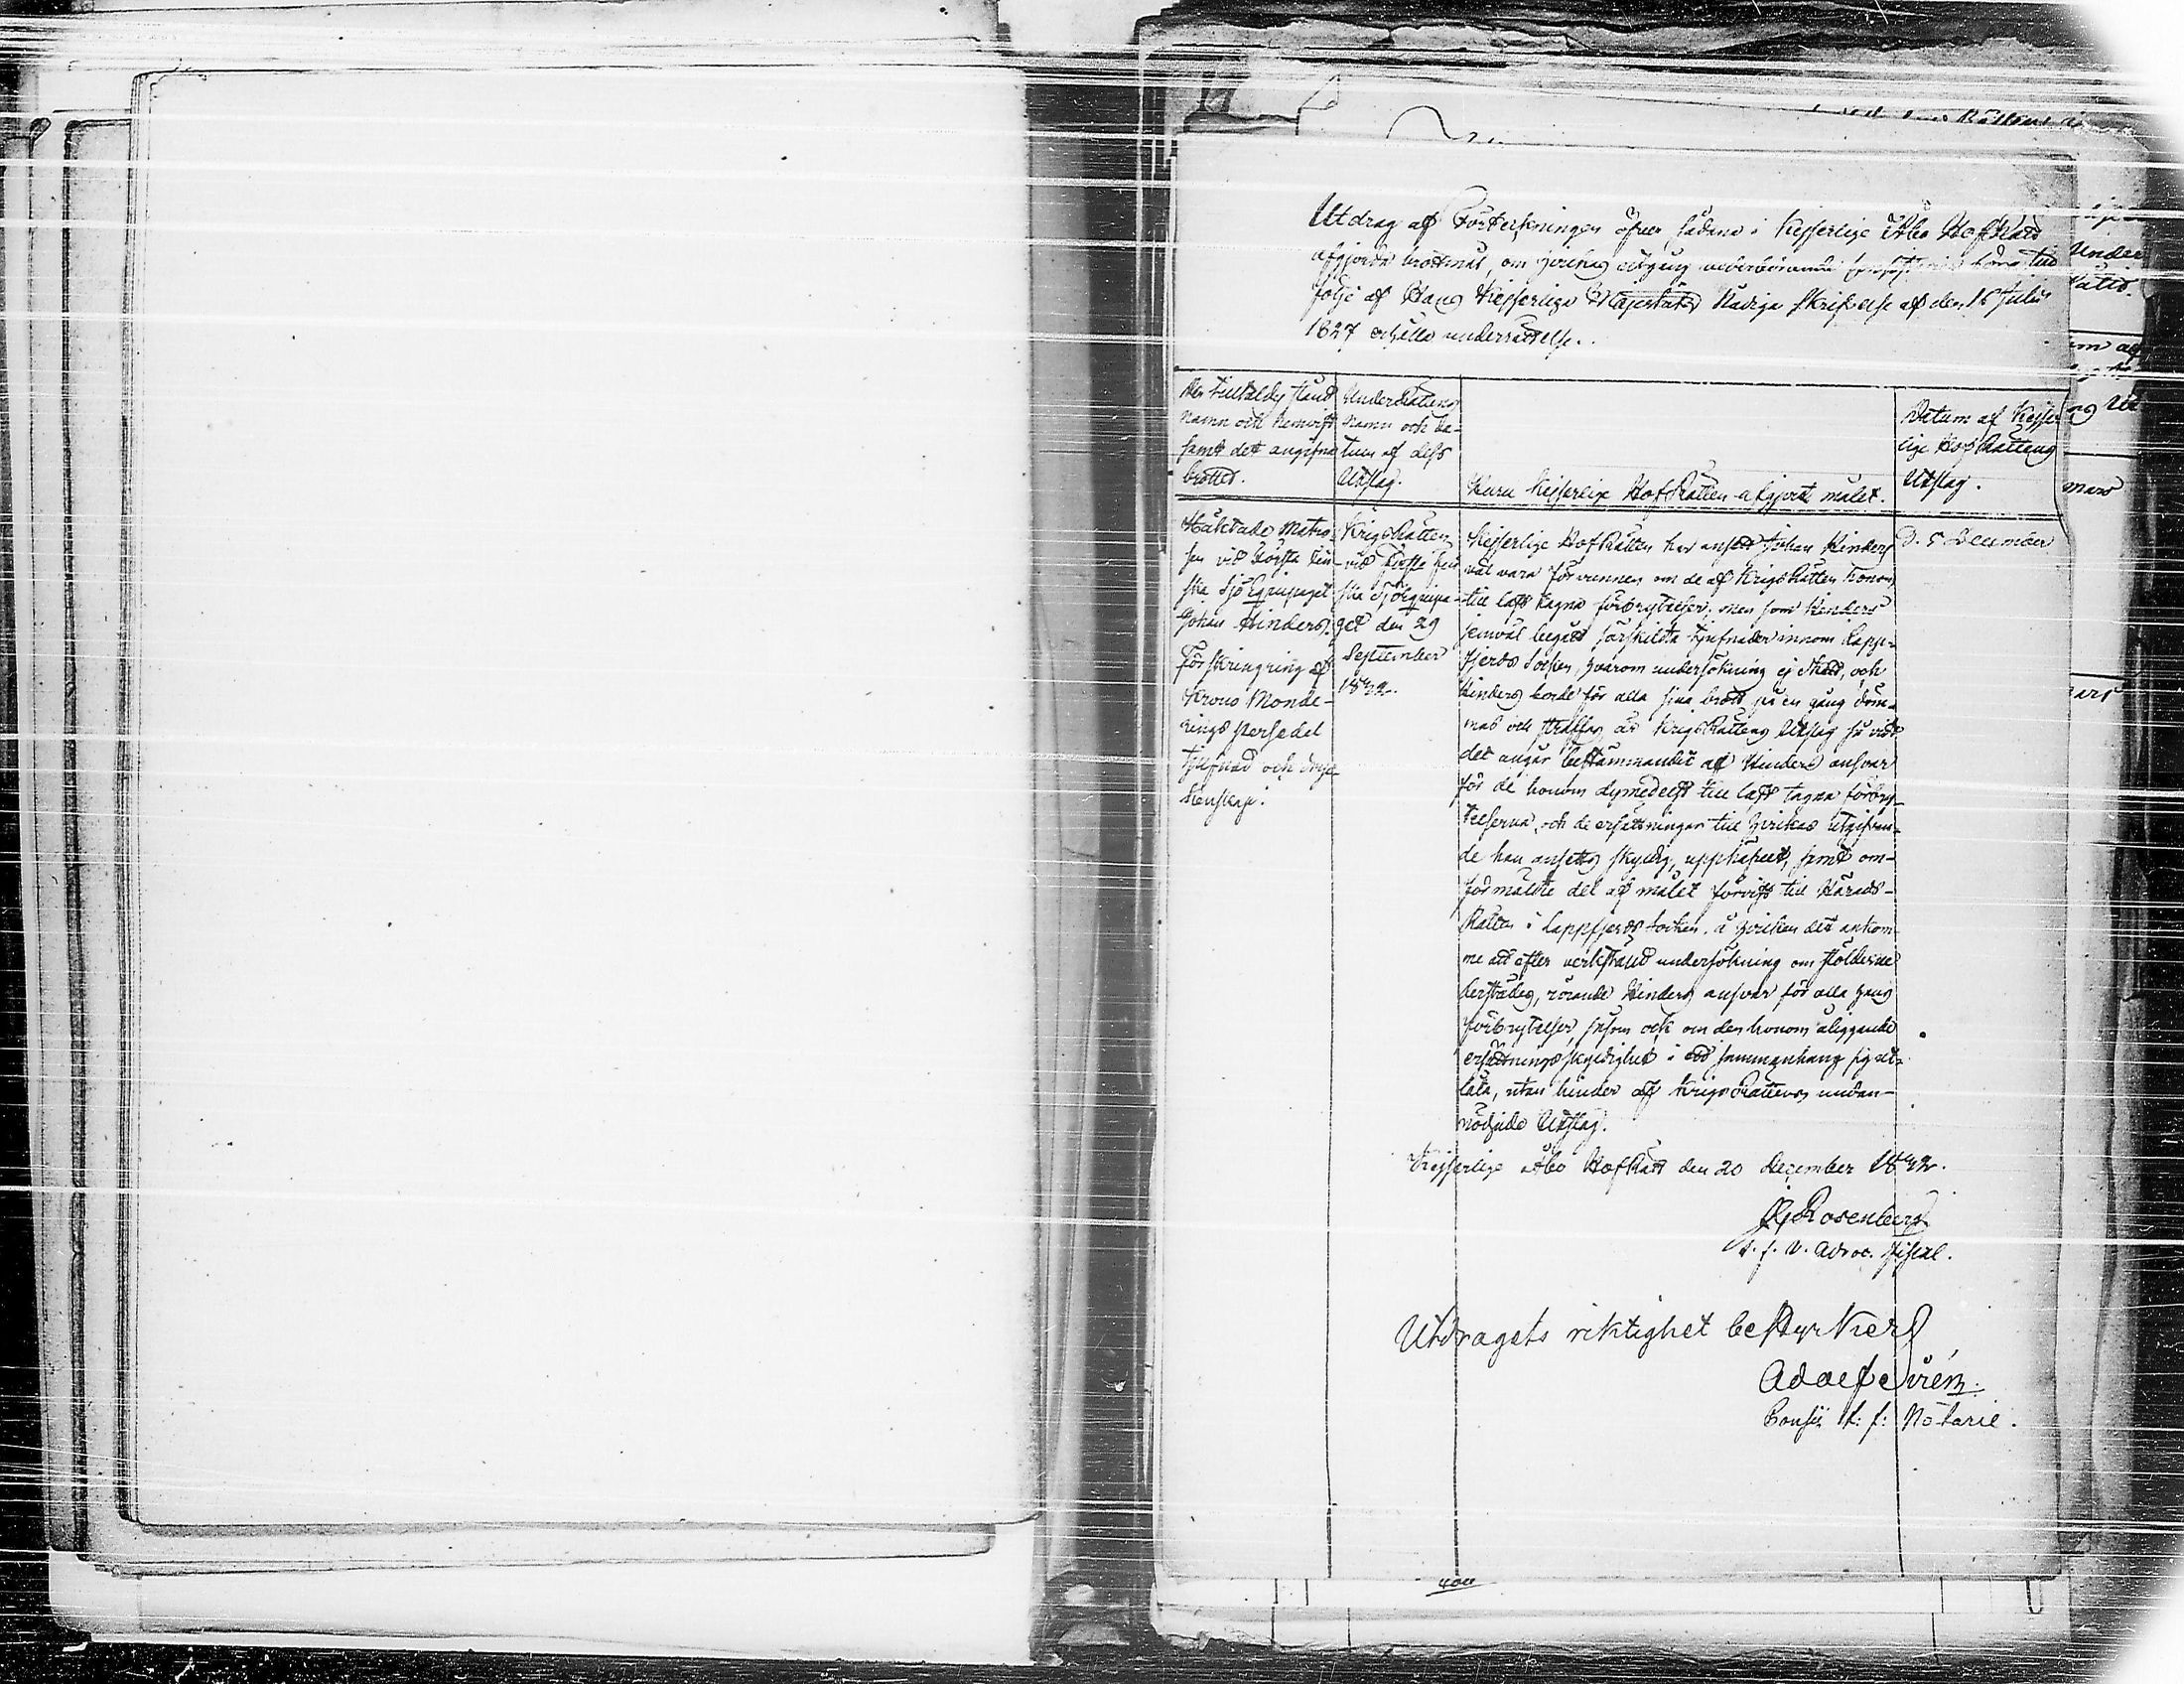 Utdrag af Förteckningen öfver sådana i Kejserlige Åbo HofRätt
afgjorda brottmål, om hvilkas utgång vederbörande
följe af Hans Kejserliga Majestäts Nådiga Skrifvelse af den 16 Julii
1827 erhålla underrättelse.
Den Tilltaldes stånd
namn och hemvist
samt det angifna
brottet.
UnderRättens
Namn och da-
tum af dess
Utslag.
Huru Kejserlige HofRätten afgjort målet.
Datum af Kejser
lige HofRättens
Utslag.
Häktade Matro-
sen vid Första Fin-
ska Sjö Equipaget
Johan Hinders,
Förskingring af
Krono Monde-
rings persedel
tjufnad och dryc-
kenskap.
KrigsRätten
vid Första Fin
ska SjöEquipa-
get den 29
September
1832.
Kejserlige HofRätten har ansett Johan Hinders
väl vara förvunnen om de af KrigsRätten honom
till last lagda förbrytelser, men som Hinders
jemväl begått särskilda tjufnader innom Lapp-
fjerds Socken, hvarom undersökning ej skett, och
Hinders borde för alla sina brott på en gång döm-
mas och straffas, är KrigsRättens Utslag så vidt
det angår bestämmandet af Hinders ansvar
för de honom dymedelst till last lagda förbry-
telserna, och de ersättningar till hvilkas utgifvan-
de han ansetts skyldig, upphäfvet, samt om-
förmälde del af målet förvist till Härads-
Rätten i Lappfjerds Socken, å hvilken det ankom-
me att efter verkställd undersökning om stölderne
derstädes, rörande Hinders ansvar för alla hans
förbrytelser, såsom ock om den honom åliggande
ersättningsskyldighet i ett sammanhang sig ut-
låta, utan hinder af KrigsRättens undan-
rödjde Utslag.
D. 5 December
Kejserlige Åbo HofRätt den 20 December 1832.
Rosenberg
t. f. v. Advoc. Fiskal.
Utdragets riktighet bestyrker
Adolf Sirén
Consist. t: f: Notarie.